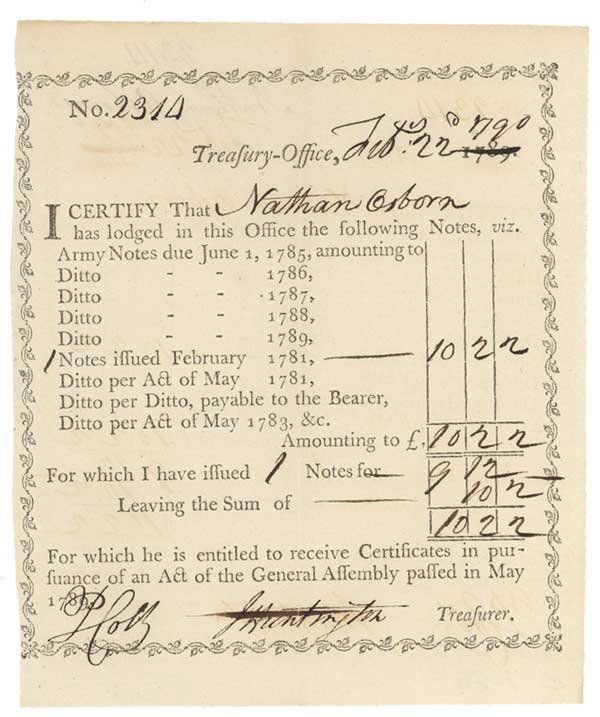 No. 2314
Treaſury-Office, Feb. 22d 1790
1789.
I CERTIFY That Nathan Osborn
has lodged in this Office the following Notes, viz.
Army Notes due June 1, 1785, amounting to
Ditto - - 1786,
Ditto - - 1787,
Ditto - - 1788,
Ditto - - 1789,
1 Notes iſſued February 1781, 10 2 2
Ditto per Act of May 1781,
Ditto per Ditto, payable to the Bearer,
Ditto per Act of May 1783, &c.
Amounting to £. 10 2 2
For which I have iſſued 1 Notes for 9 12
Leaving the Sum of 10 2
10 2 2
For which he is entitled to receive Certificates in pur-
ſuance of an Act of the General Aſſembly paſſed in May
1789.
J Huntington Treaſurer.